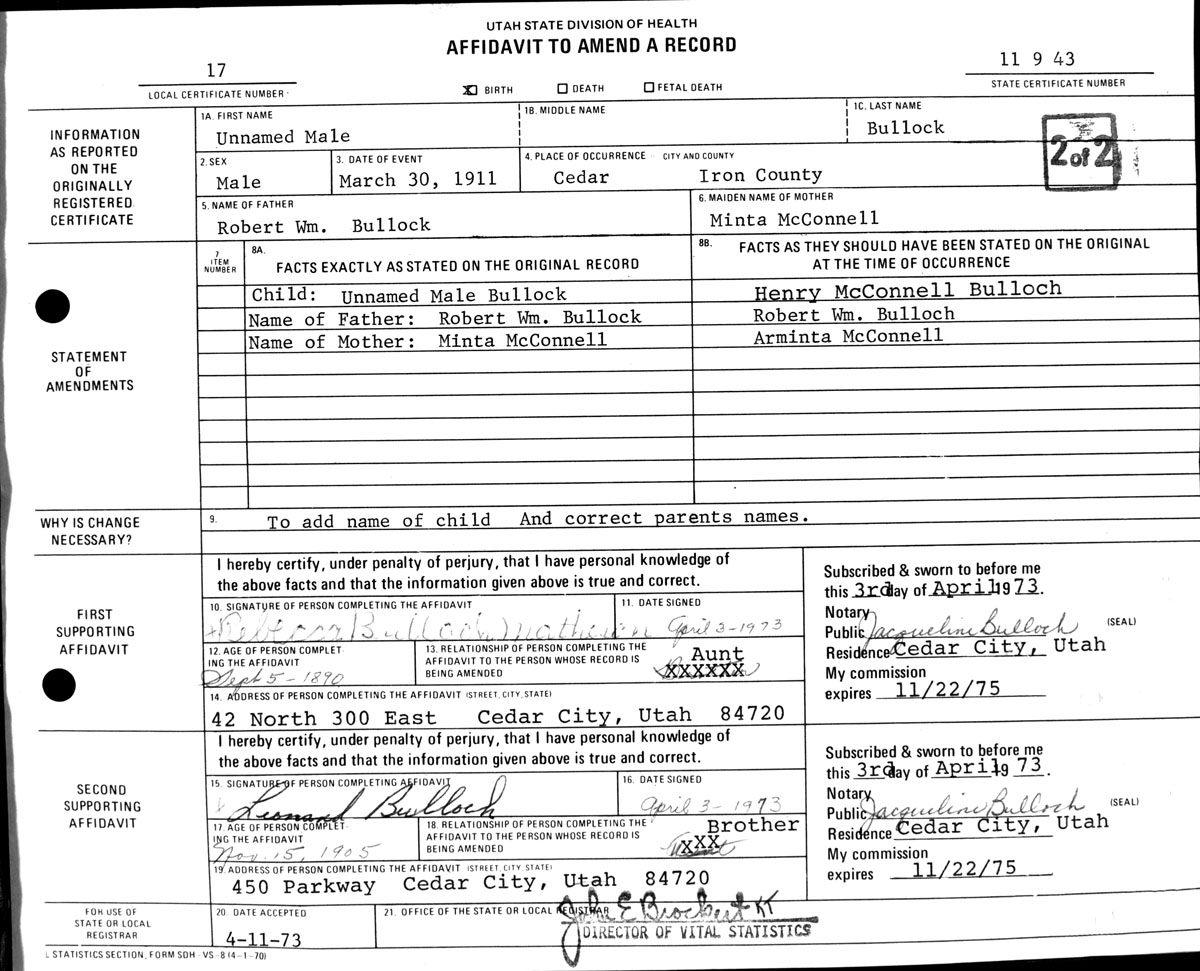 UTAH STATE DIVISION OF HEALTH
AFFIDAVIT TO AMEND A RECORD
17
LOCAL CERTIFICATE NUMBER
X BIRTH DEATH FETAL DEATH
11 9 43
STATE CERTIFICATE NUMBER
INFORMATION
AS REPORTED
ON THE
ORIGINALLY
REGISTERED
CERTIFICATE
1A. FIRST NAME
Unnamed Male
1B. MIDDLE NAME
1C. LAST NAME
Bullock
2 of 2
2. SEX
Male
3. DATE OF EVENT
March 30, 1911
4. PLACE OF OCCURRENCE CITY AND COUNTY
Cedar Iron County
5. NAME OF FATHER
Robert Wm. Bullock
6. MAIDEN NAME OF MOTHER
Minta McConnell
STATEMENT
OF
AMENDMENTS
7
ITEM
NUMBER
8A.
FACTS EXACTLY AS STATED ON THE ORIGINAL RECORD
8B. FACTS AS THEY SHOULD HAVE BEEN STATED ON THE ORIGINAL
AT THE TIME OF OCCURRENCE
Child: Unnamed Male Bullock
Henry McConnell Bulloch
Name of Father: Robert Wm. Bullock
Robert Wm. Bulloch
Name of Mother: Minta McConnell
Arminta McConnell
WHY IS CHANGE
NECESSARY?
9. To add name of child And correct parents names.
FIRST
SUPPORTING
AFFIDAVIT
I hereby certify, under penalty of perjury, that I have personal knowledge of
the above facts and that the information given above is true and correct.
10. SIGNATURE OF PERSON COMPLETING THE AFFIDAVIT
Rebecca Bulloch Matheson
11. DATE SIGNED
April 3-1973
12. AGE OF PERSON COMPLET
ING THE AFFIDAVIT
Sept 5-1890
13. RELATIONSHIP OF PERSON COMPLETING THE
AFFIDAVIT TO THE PERSON WHOSE RECORD IS
BEING AMENDED
Aunt
XXXXXX
14. ADDRESS OF PERSON COMPLETING THE AFFIDAVIT (STREET, CITY, STATE)
42 North 300 East Cedar City, Utah 84720
Subscribed & sworn to before me
this 3rd day of April 1973.
Notary
Public Jacqueline Bulloch (SEAL)
Residence Cedar City, Utah
My commission
expires 11/22/75
SECOND
SUPPORTING
AFFIDAVIT
I hereby certify, under penalty of perjury, that I have personal knowledge of
the above facts and that the information given above is true and correct.
15. SIGNATURE OF PERSON COMPLETING AFFIDAVIT
Leonard Bulloch
16. DATE SIGNED
April 3-1973
17. AGE OF PERSON COMPLET
ING THE AFFIDAVIT
Nov. 15, 1905
18. RELATIONSHIP OF PERSON COMPLETING THE
AFFIDAVIT TO THE PERSON WHOSE RECORD IS
BEING AMENDED
Brother
XXX
19. ADDRESS OF PERSON COMPLETING THE AFFIDAVIT (STREET, CITY, STATE)
450 Parkway Cedar City, Utah 84720
Subscribed & sworn to before me
this 3rd day of April 1973.
Notary
Public Jacqueline Bulloch (SEAL)
Residence Cedar City, Utah
My commission
expires 11/22/75
FOR USE OF
STATE OR LOCAL
REGISTRAR
20. DATE ACCEPTED
4-11-73
21. OFFICE OF THE STATE OR LOCAL REGISTRAR
John E Brockert KT
DIRECTOR OF VITAL STATISTICS
L STATISTICS SECTION, FORM SDH-VS-8 (4-1-70)